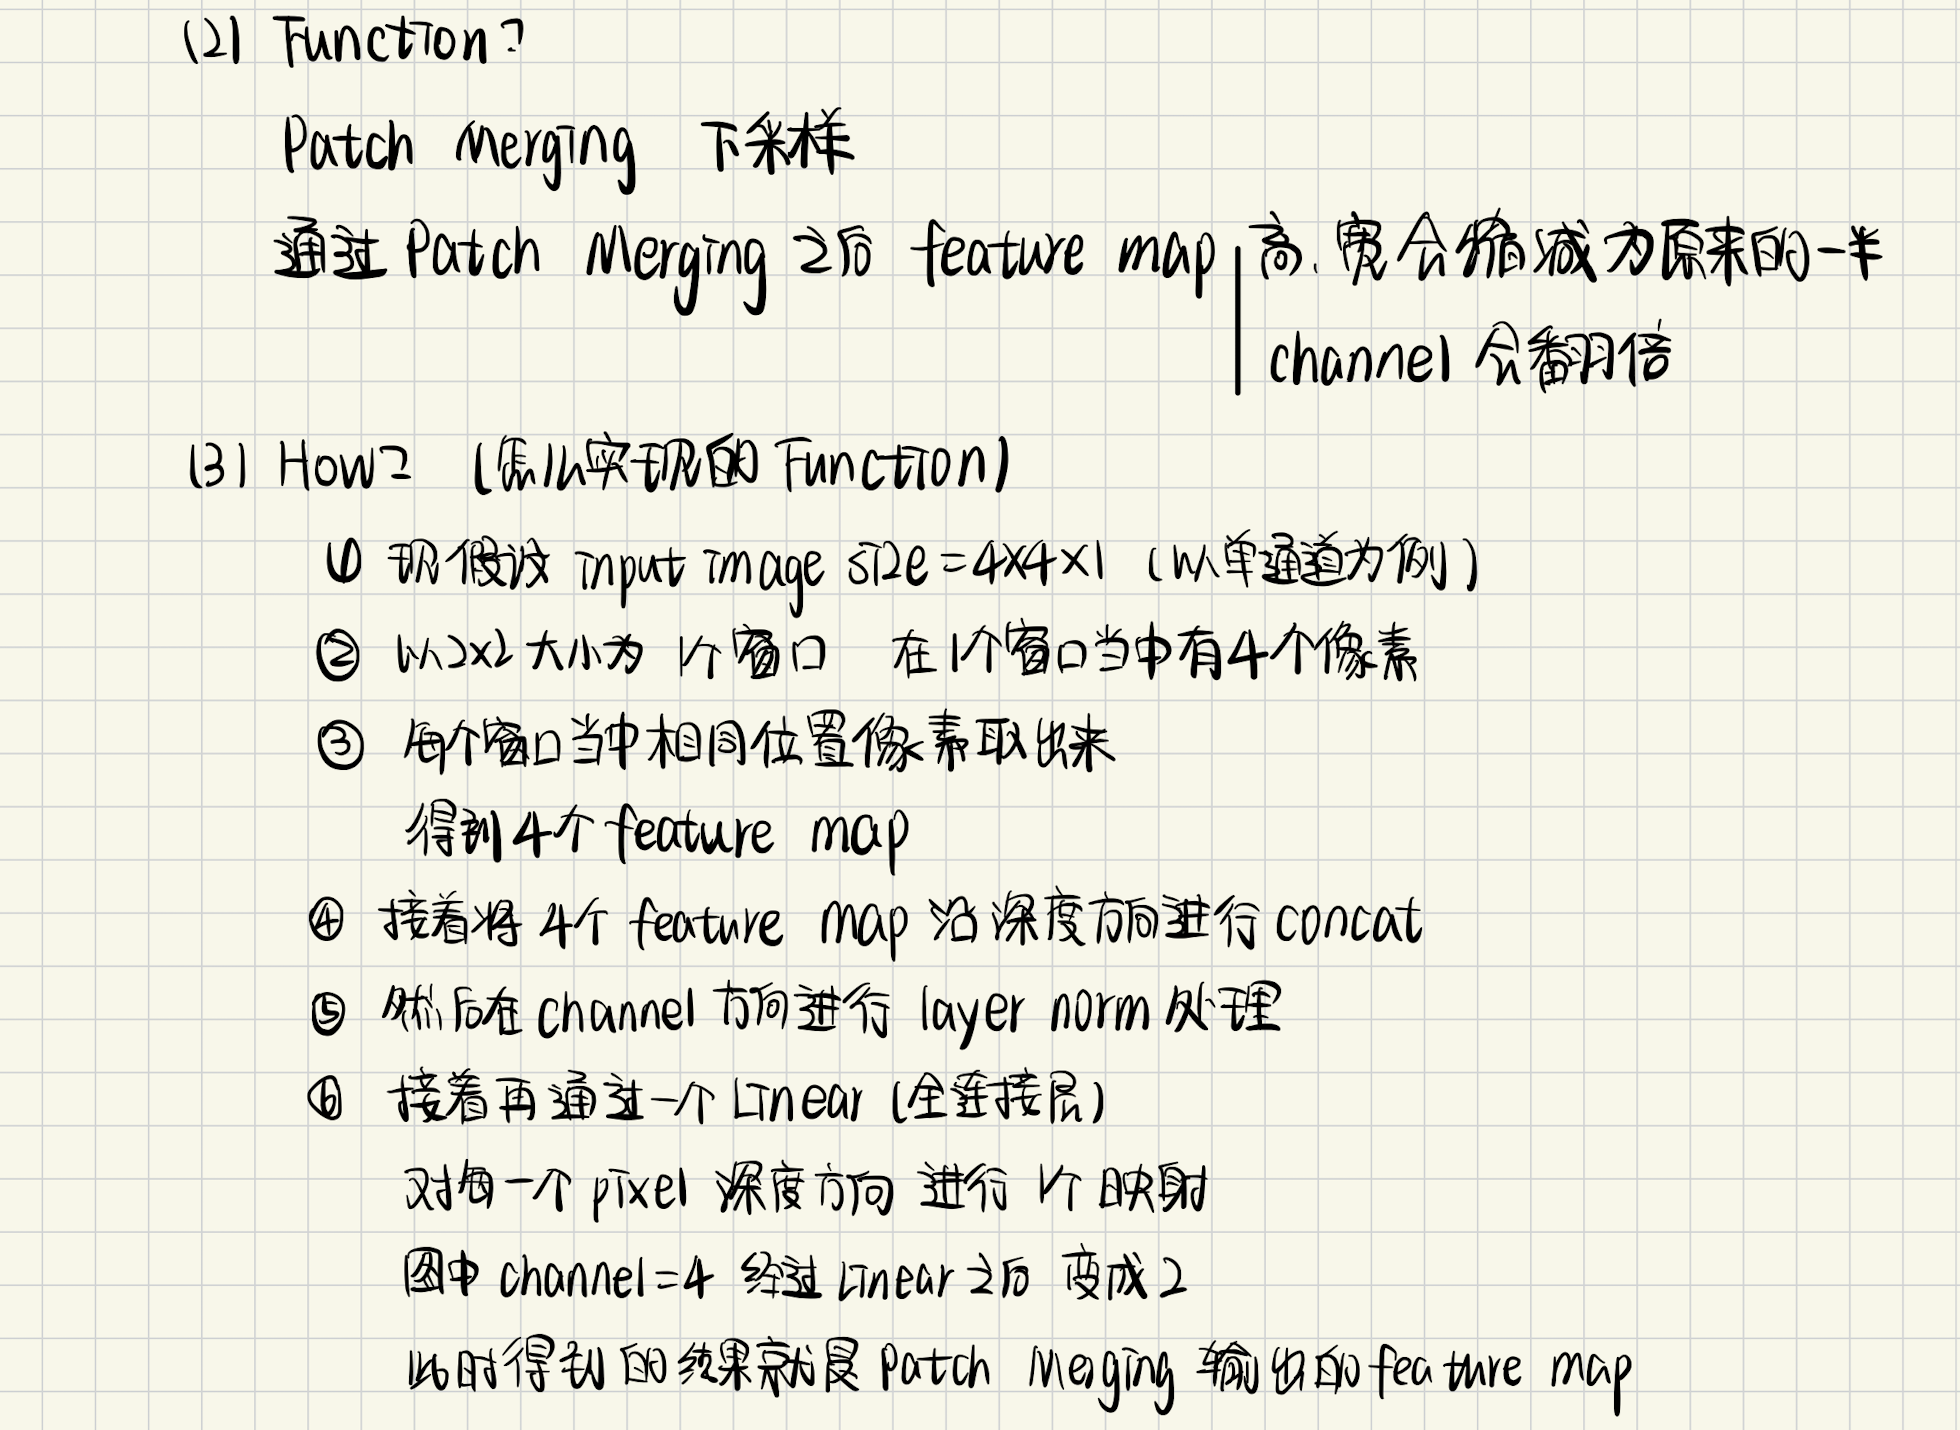 (2) Function?
Patch Merging 下采样
通过 Patch Merging 之后 feature map 高、宽会缩减为原来的一半
channel 会翻倍
(3) How? (怎么实现的 Function)
① 现假设 input image size = 4×4×1 (以单通道为例)
② 以2×2大小为 1个窗口 在1个窗口当中有4个像素
③ 每个窗口当中相同位置像素取出来
得到4个 feature map
④ 接着将 4个 feature map 沿深度方向进行 concat
⑤ 然后在 channel 方向进行 layer norm 处理
⑥ 接着再通过一个 Linear (全连接层)
对每一个 pixel 深度方向 进行 1个 映射
图中 channel = 4 经过 Linear 之后 变成 2
此时得到的结果就是 Patch Merging 输出的 feature map